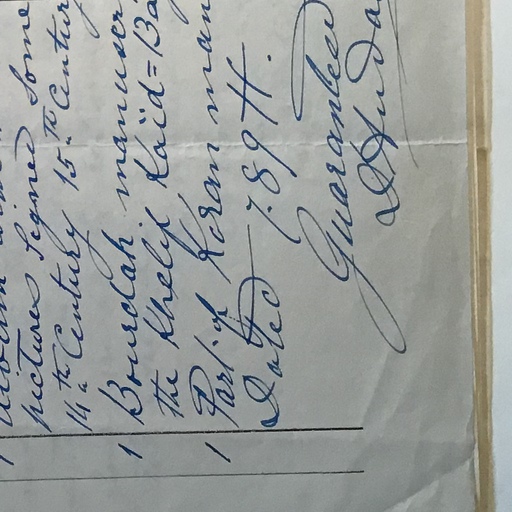 1 Album
pictures signed some
14th Century 15th Century
1 Bourdah manuscr
the Khelif Kaïd=Ba
1 Part of Koran man
Dated 789 H.
Guaranteed